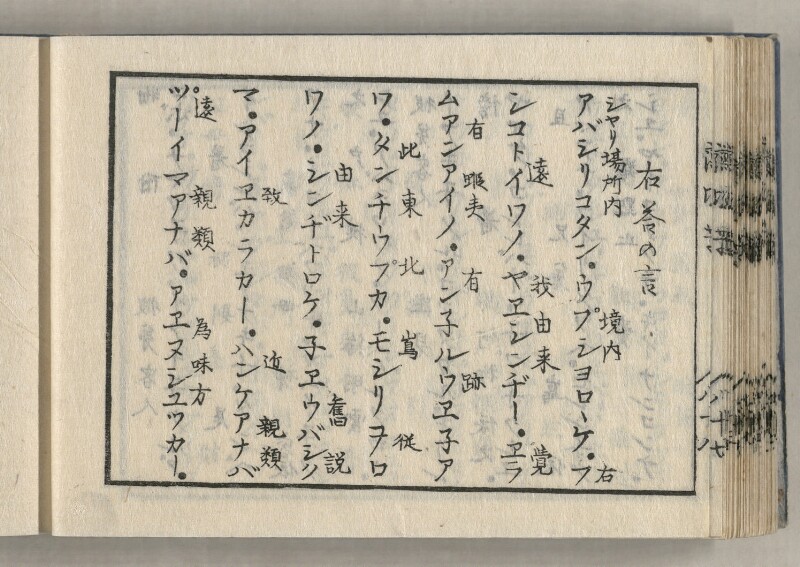 右荅の言
シヤリ場所内 境内 右
アバシリコタン。ウプシヨロヽケ。フ
遠 我由来 覚
シコトイワノ。ヤヱシンヂー。ヱラ
有 蝦夷 有 跡
ムアンアイノ。アン子ルウヱ子ア
此東北嶌 従
ワ。タンチウプカ。モシリヲロ
由来 舊説
ワノ。シンヂトロケ。子ヱウバシク
致 近 親類
マ。アイヱカラカー。ハンケアナバ
遠 親類 為味方
ツーイマアナバ。アヱヌシユツカー。